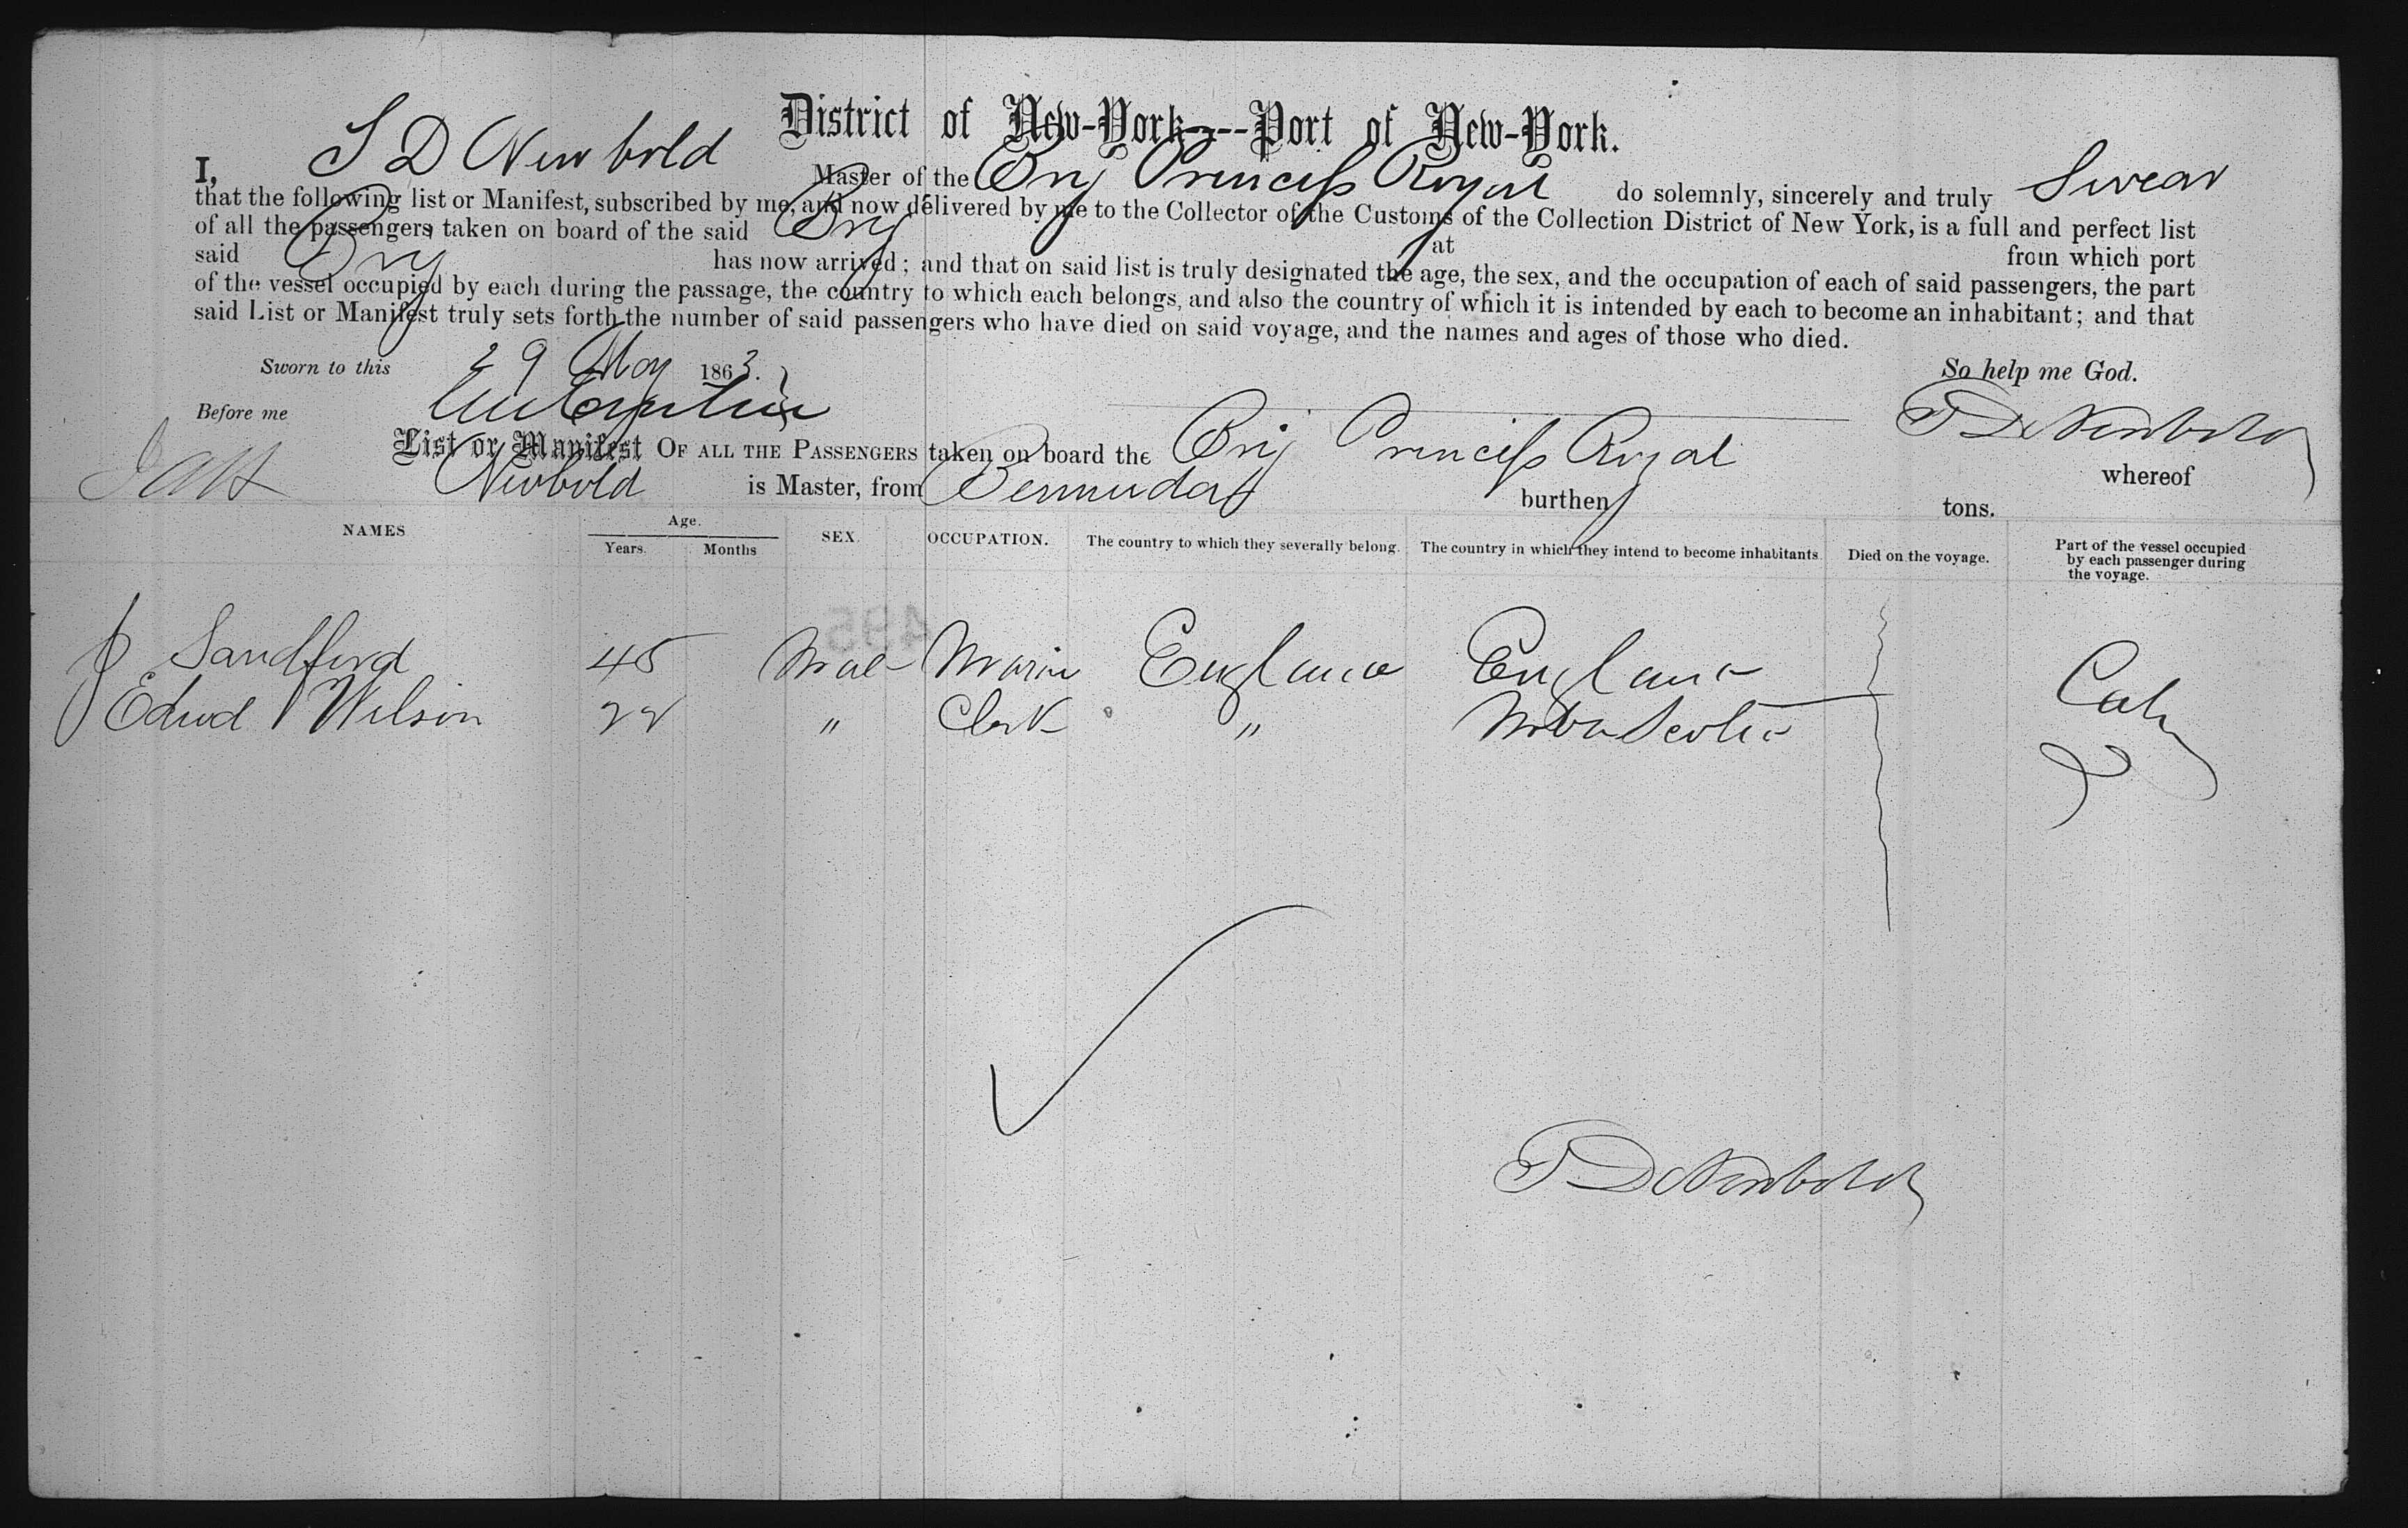 District of New-York---Port of New-York.
I, S D Newbold Master of the Brig Princess Royal do solemnly, sincerely and truly Swear
that the following list or Manifest, subscribed by me, and now delivered by me to the Collector of the Customs of the Collection District of New York, is a full and perfect list
of all the passengers taken on board of the said Brig at from which port
said Brig has now arrived; and that on said list is truly designated the age, the sex, and the occupation of each of said passengers, the part
of the vessel occupied by each during the passage, the country to which each belongs, and also the country of which it is intended by each to become an inhabitant; and that
said List or Manifest truly sets forth the number of said passengers who have died on said voyage, and the names and ages of those who died.
Sworn to this 29 May 1863. So help me God.
Before me T D Newbold
List or Manifest OF ALL THE PASSENGERS taken on board the Brig Princess Royal whereof
Newbold is Master, from Bermuda burthen tons.
NAMES Age. Years. Months SEX. OCCUPATION. The country to which they severally belong. The country in which they intend to become inhabitants. Died on the voyage. Part of the vessel occupied by each passenger during the voyage.
J Sandford 45 Male England England
Edwd Wilson 22 " Clerk " Nova Scotia
T D Newbold